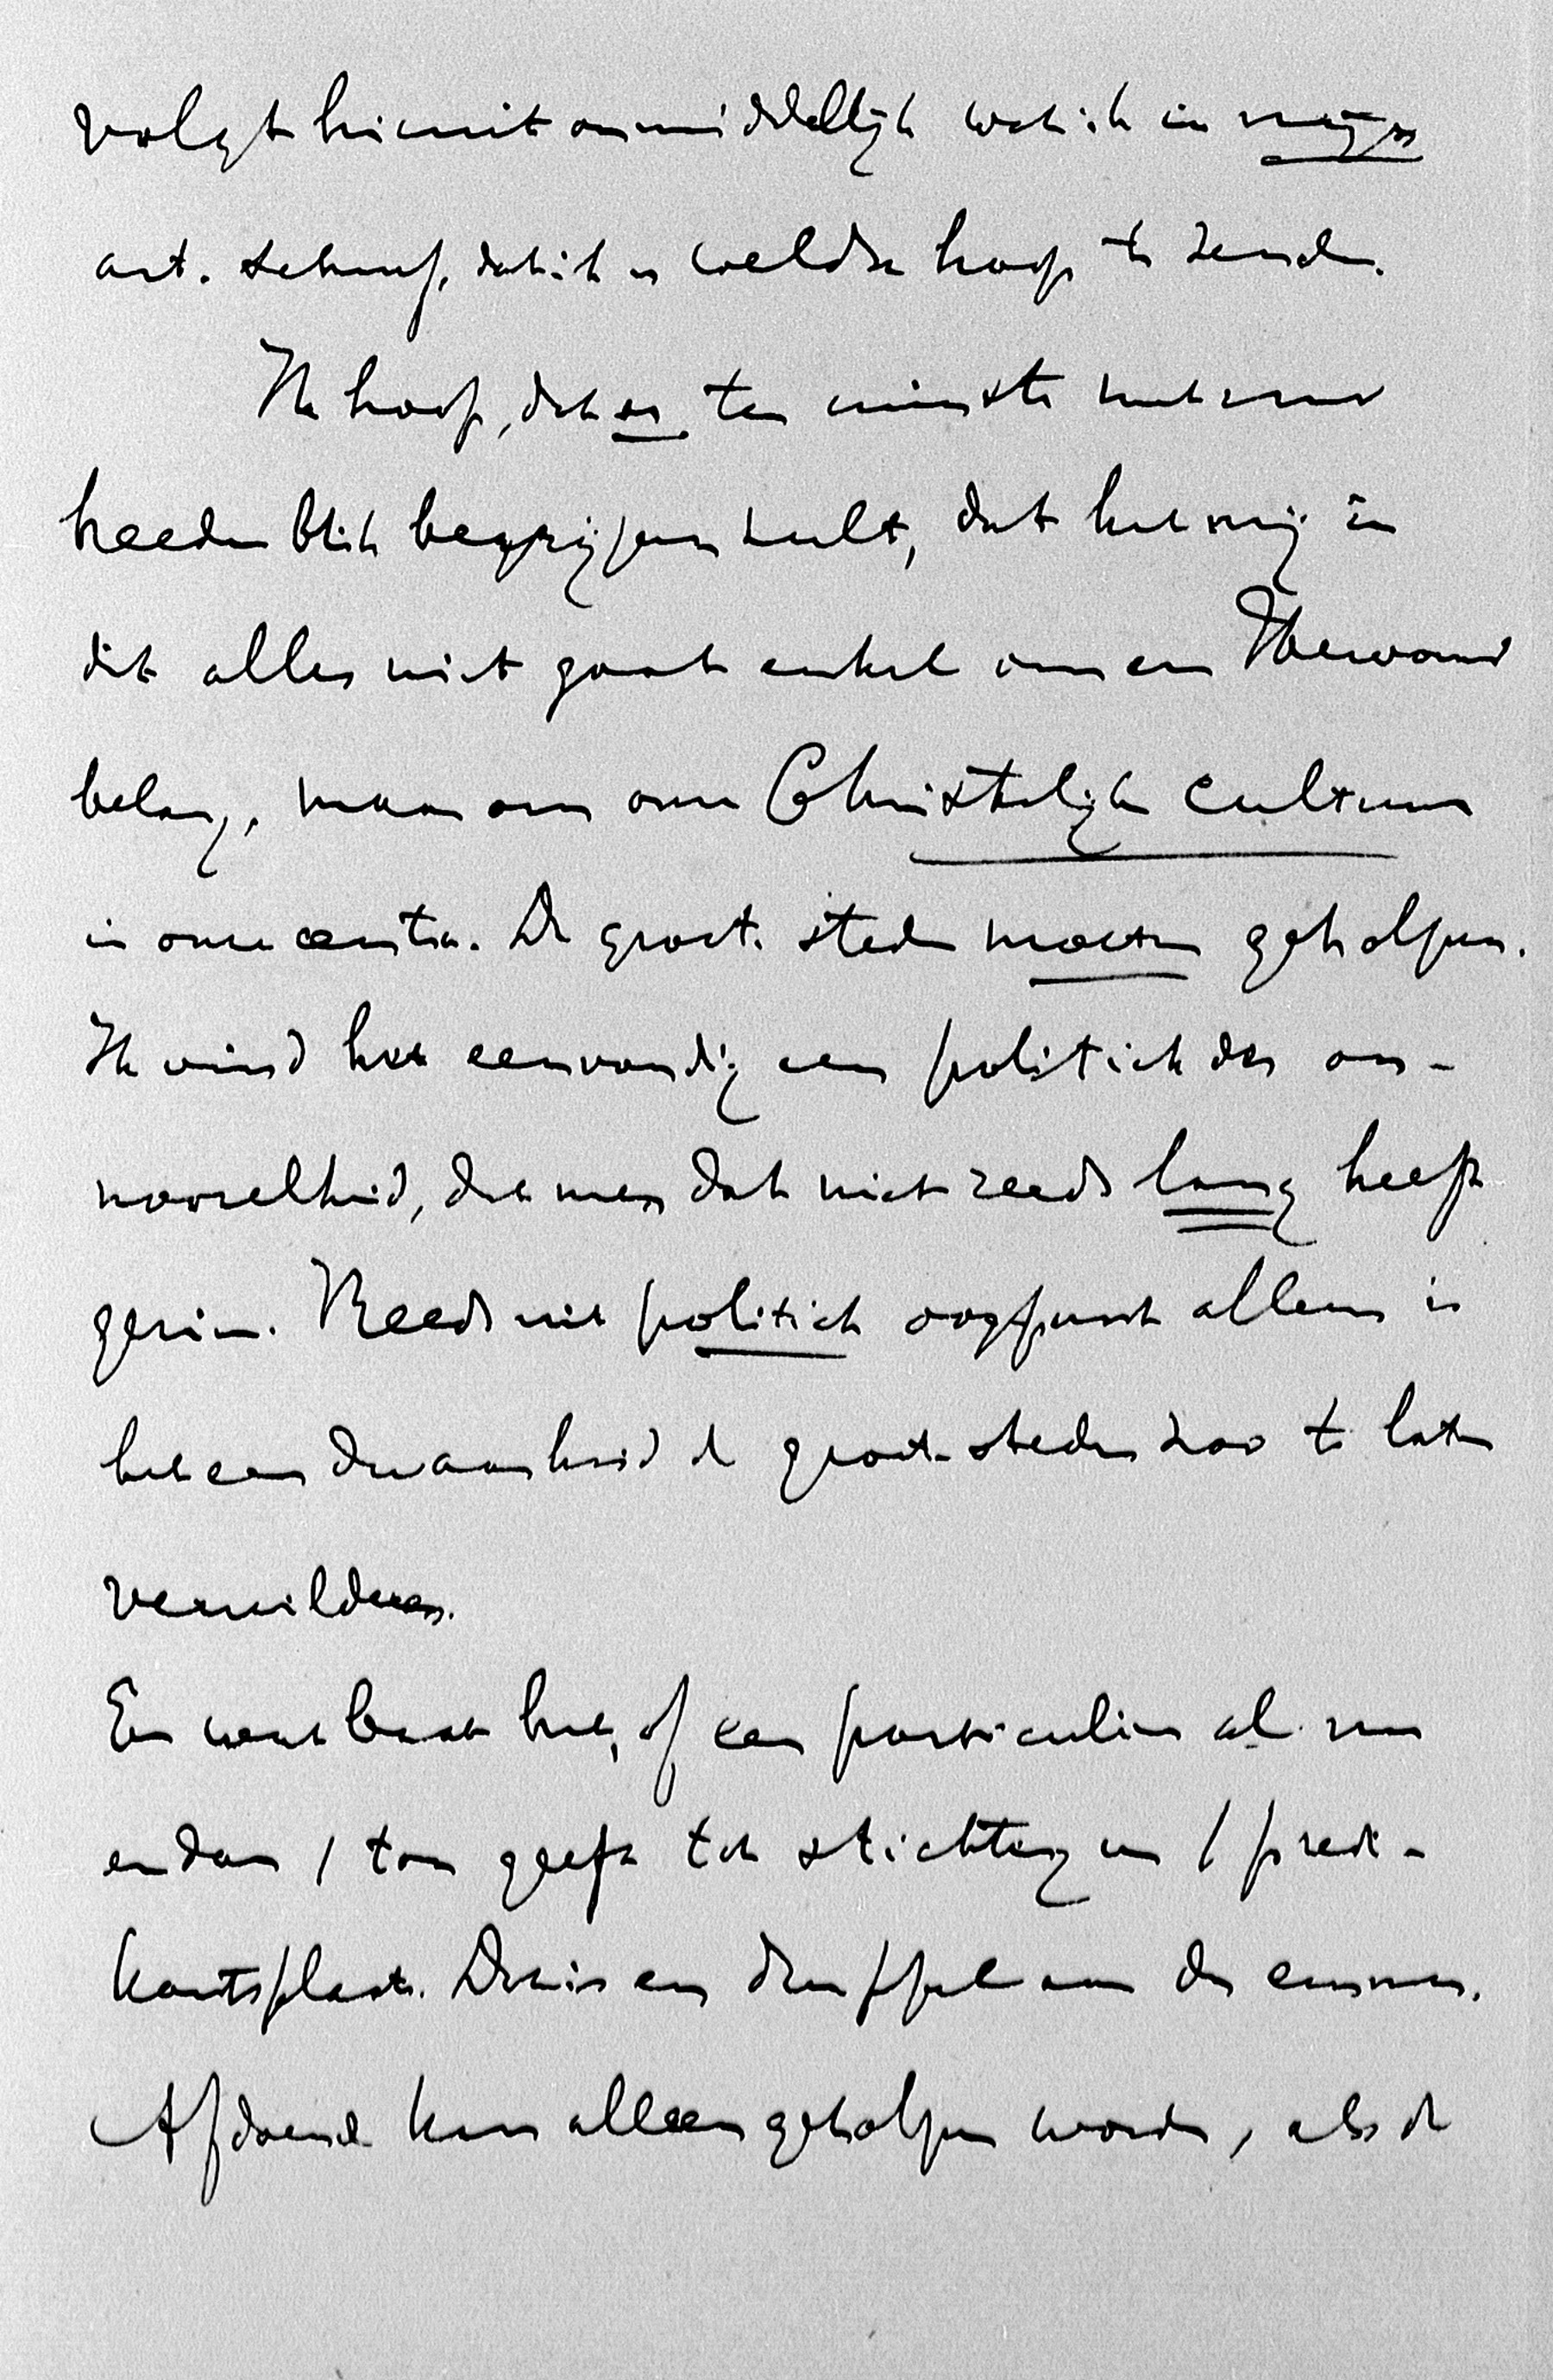 volgt hieruit onmiddellijk wat ik in mijn
art. schreef, dat ik u weldra hoop te zenden.
Ik hoop, dat u ten minste met uw
helderen blik begrijpen zult, dat het mij in
dit alles niet gaat enkel om een
belang, maar om onze Christelijke cultuur
in onze centra. De groote steden moeten geholpen.
Ik vind het eenvoudig een politiek der on-
noozelheid, dat men dat niet reeds lang heeft
gezien. Reeds uit politiek oogpunt alleen is
het een dwaasheid de groote steden zoo te laten
verwilderen.
En wat baat het, of een particulier al nu
en dan 1 ton geeft tot stichting van 1 predi-
kantsplaats. Dat is een druppel aan den emmer.
Afdoende kan alleen geholpen worden, als de